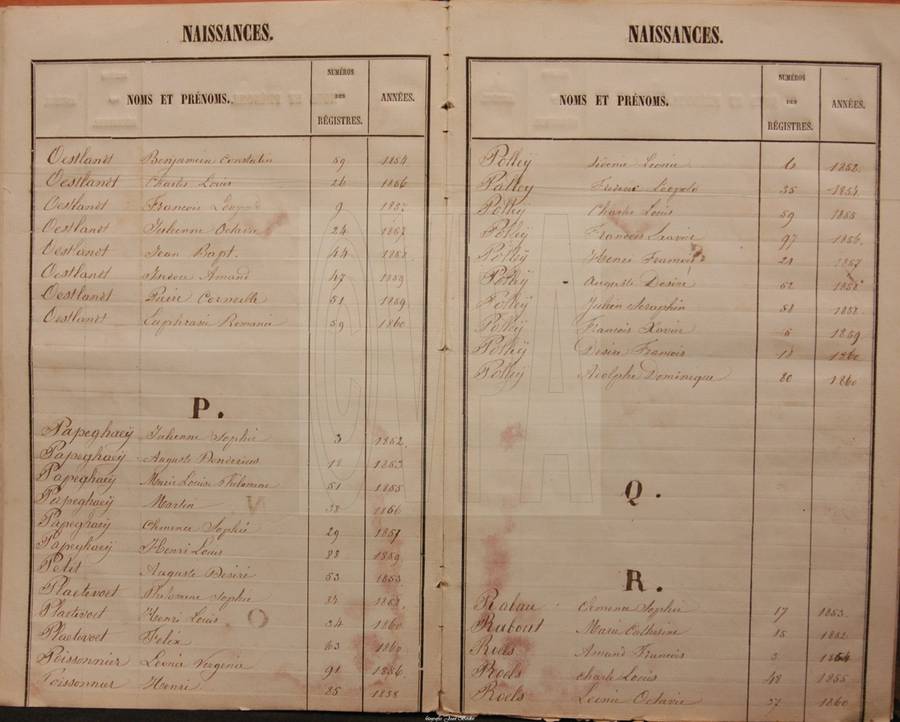 NAISSANCES.
NOMS ET PRÉNOMS. NUMÉROS DES RÉGISTRES. ANNÉES.
Oestlandt Benjamin Constatin 59 1854
Oestlandt Charles Louis 26 1856
Oestlandt Francois Léopold 9 1857
Oestlandt Julienne Octavie 24 1857
Oestlandt Jean Bapt. 44 1858
Oestlandt Isidore Amand 47 1859
Oestlandt Pierre Corneille 51 1859
Oestlandt Euphrasie Romanie 59 1860
P.
Papeghaeÿ Julienne Sophie 3 1852
Papeghaeÿ Auguste 18 1853
Papeghaeÿ Marie Louise Philomene 51 1855
Papeghaeÿ Martin 38 1856
Papeghaeÿ Clemence Sophie 29 1857
Papeghaeÿ Henri Louis 28 1859
Petit Auguste Désiré 53 1853
Plaetevoet Philomene Sophie 34 1858
Plaetevoet Henri Louis 34 1860
Plaetevoet Felix 63 1860
Poissonnier Léonie Virginie 91 1856
Poissonnier Henri 25 1858
NAISSANCES.
NOMS ET PRÉNOMS. NUMÉROS DES RÉGISTRES. ANNÉES.
Polleÿ Sidonie Léonie 6 1852
Polleÿ Frederic Léopold 35 1854
Polleÿ Charles Louis 59 1855
Polleÿ Francois Xavier 97 1856
Polleÿ Henri Francois 21 1857
Polleÿ Auguste Désiré 52 1858
Polleÿ Julien Seraphin 58 1858
Polleÿ Francois Xavier 6 1859
Polleÿ Désiré Francois 18 1860
Polleÿ Adolphe Dominique 20 1860
Q.
R.
Clemence Sophie 17 1853
Rubout Marie Catherine 15 1852
Roels Amand Francois 3 1854
Roels Charles Louis 48 1855
Roels Léonie Octavie 37 1860